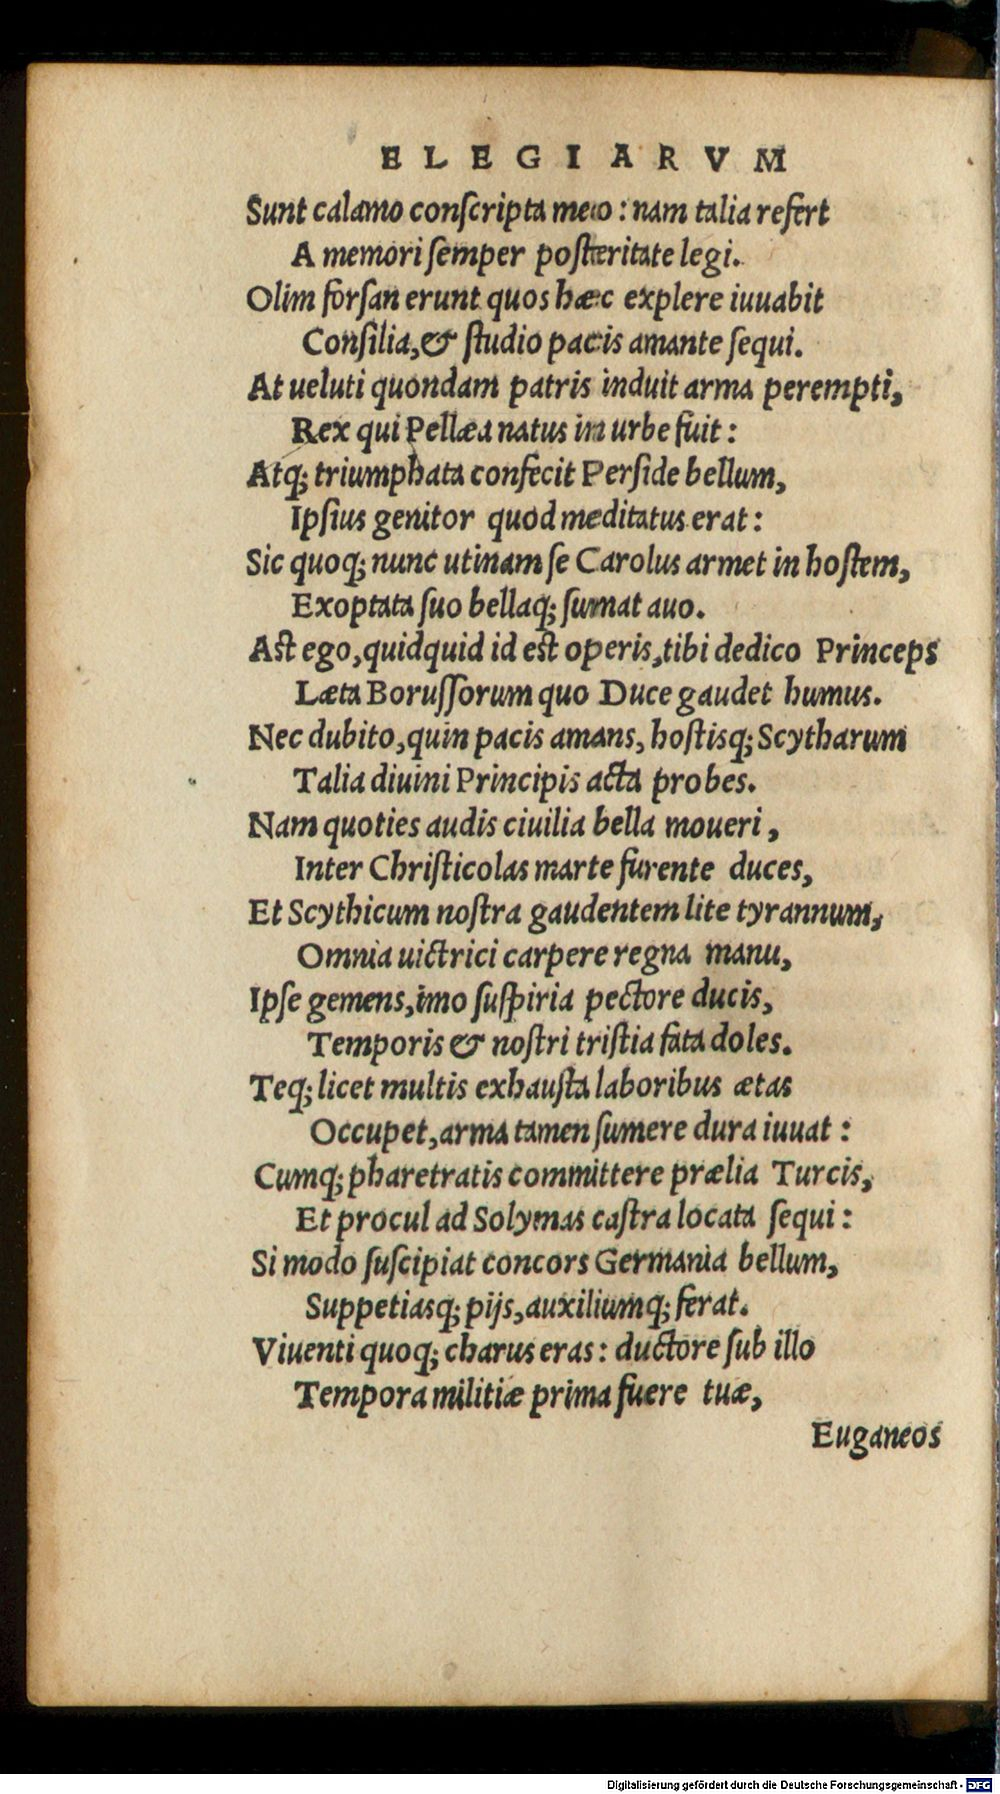 ELEGIARVM
Sunt calamo conſcripta meo : nam talia refert
A memori ſemper poſteritate legi.
Olim forſan erunt quos hæc explere iuuabit
Conſilia, & ſtudio pacis amante ſequi.
At ueluti quondam patris induit arma perempti,
Rex qui Pellæa natus in urbe fuit :
Atq; triumphata confecit Perſide bellum,
Ipſius genitor quod meditatus erat :
Sic quoq; nunc utinam ſe Carolus armet in hoſtem,
Exoptata ſuo bellaq; ſumat auo.
Aſt ego, quidquid id eſt operis, tibi dedico Princeps
Læta Boruſſorum quo Duce gaudet humus.
Nec dubito, quin pacis amans, hoſtisq; Scytharum
Talia diuini Principis acta probes.
Nam quoties audis ciuilia bella moueri ,
Inter Chriſticolas marte furente duces,
Et Scythicum noſtra gaudentem lite tyrannum,
Omnia uictrici carpere regna manu,
Ipſe gemens, imo ſuſpiria pectore ducis,
Temporis & noſtri triſtia fata doles.
Teq; licet multis exhauſta laboribus ætas
Occupet, arma tamen ſumere dura iuuat :
Cumq; pharetratis committere prælia Turcis,
Et procul ad Solymas caſtra locata ſequi :
Si modo ſuſcipiat concors Germania bellum,
Suppetiasq; pijs, auxiliumq; ferat.
Viuenti quoq; charus eras : ductore ſub illo
Tempora militiæ prima fuere tuæ,
Euganeos
Digitalisierung gefördert durch die Deutsche Forschungsgemeinschaft - DFG